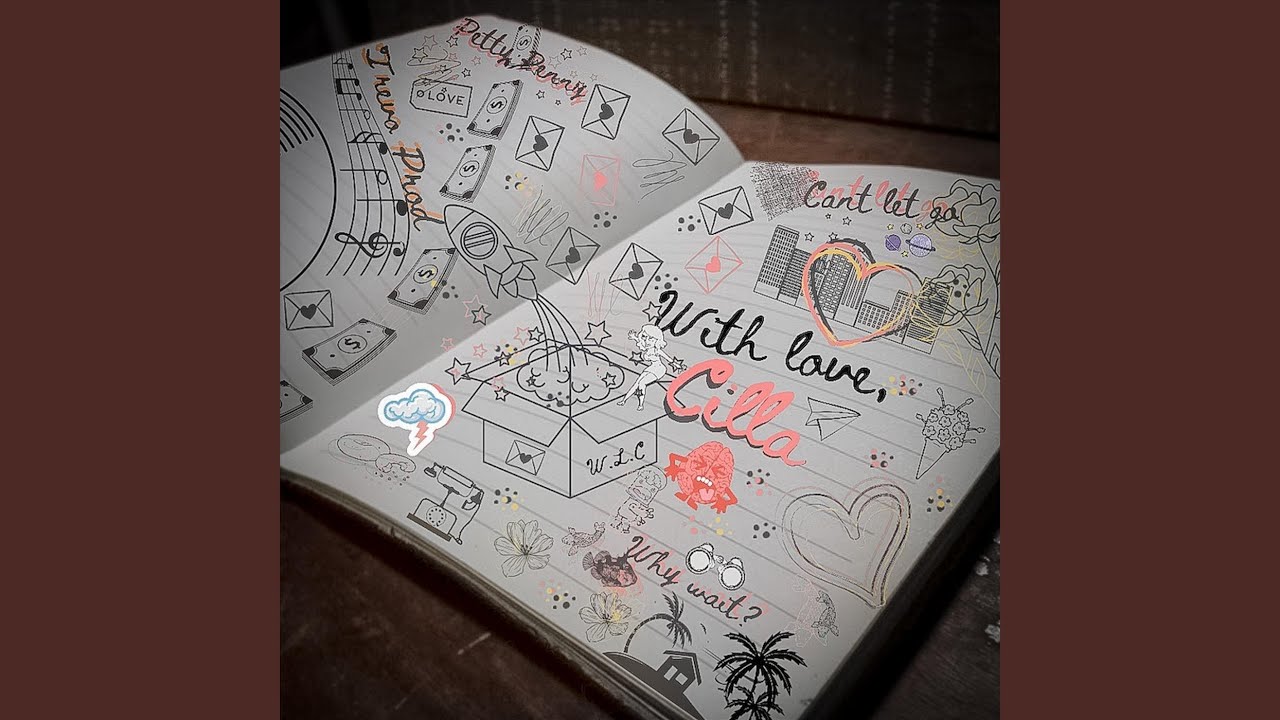 Petty Penny
Trevo Prod
LOVE
$
$
$
$
Cant let go
With love,
Cilla
W.L.C
Why wait?